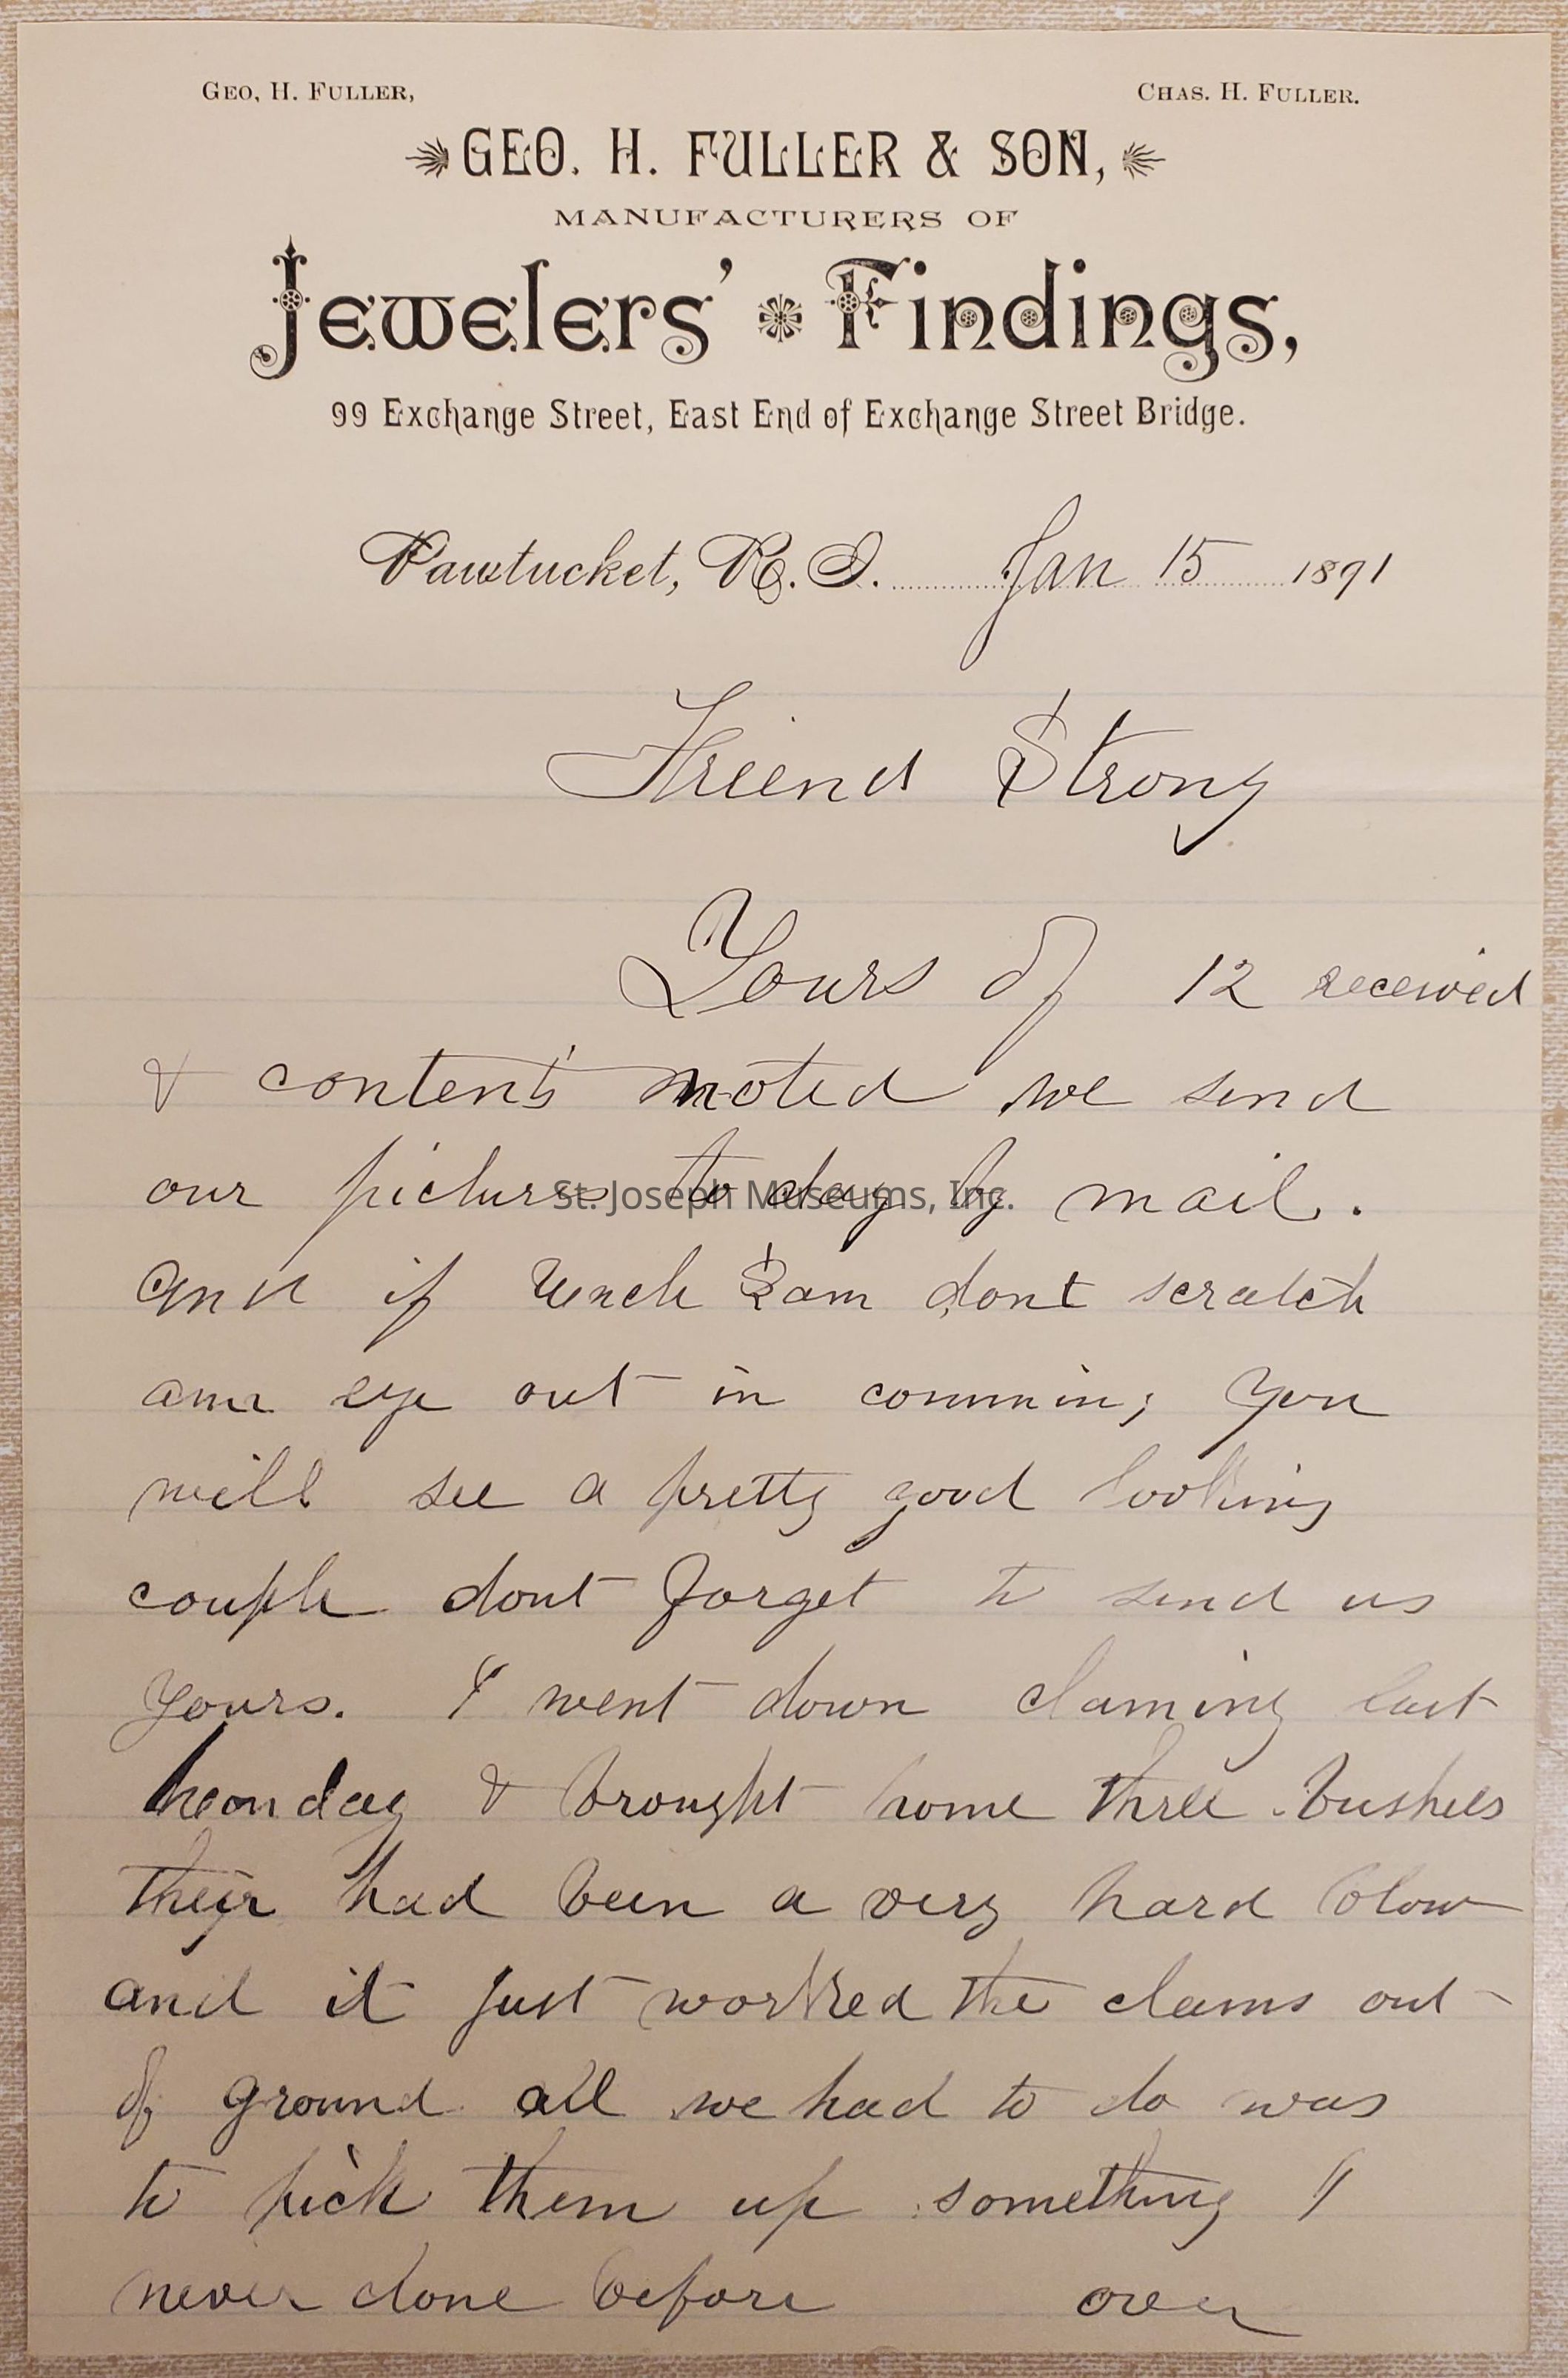 GEO. H. FULLER,
CHAS. H. FULLER.
GEO. H. FULLER & SON,
MANUFACTURERS OF
Jewelers' Findings,
99 Exchange Street, East End of Exchange Street Bridge.
Pawtucket, R. I. Jan 15 1891
Friend Strong
Yours of 12 received
& contents noted we send
our pictures to day by mail.
And if Uncle Sam dont scratch
our eye out in comming you
will see a pretty good looking
couple dont forget to send us
yours. I went down claming last
Monday & brought home three bushels
their had been a very hard blow
and it just worked the clams out
of ground all we had to do was
to pick them up something I
never done before over
St. Joseph Museums, Inc.